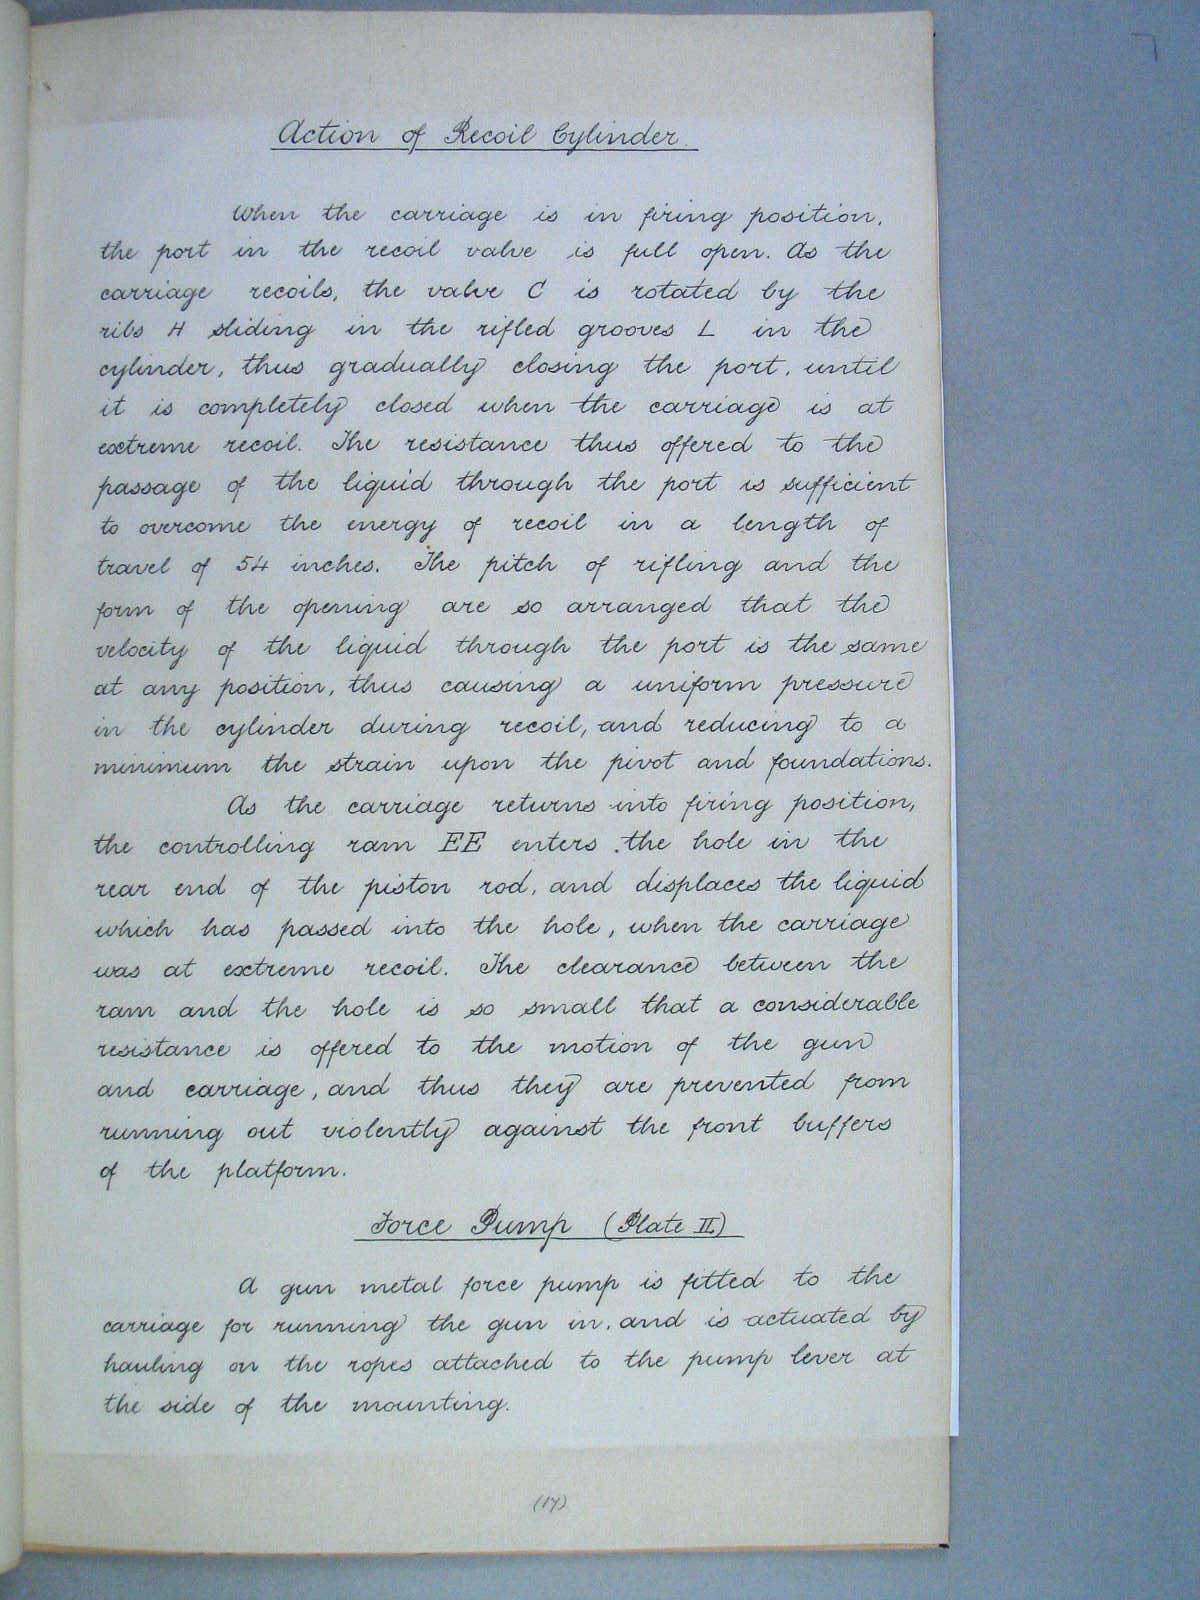 Action of Recoil Cylinder.
When the carriage is in firing position,
the port in the recoil valve is full open. As the
carriage recoils, the valve C is rotated by the
ribs H sliding in the rifled grooves L in the
cylinder, thus gradually closing the port, until
it is completely closed when the carriage is at
extreme recoil. The resistance thus offered to the
passage of the liquid through the port is sufficient
to overcome the energy of recoil in a length of
travel of 54 inches. The pitch of rifling and the
form of the opening are so arranged that the
velocity of the liquid through the port is the same
at any position, thus causing a uniform pressure
in the cylinder during recoil, and reducing to a
minimum the strain upon the pivot and foundations.
As the carriage returns into firing position,
the controlling ram EE enters the hole in the
rear end of the piston rod, and displaces the liquid
which has passed into the hole, when the carriage
was at extreme recoil. The clearance between the
ram and the hole is so small that a considerable
resistance is offered to the motion of the gun
and carriage, and thus they are prevented from
running out violently against the front buffers
of the platform.
Force Pump (Plate II)
A gun metal force pump is fitted to the
carriage for running the gun in, and is actuated by
hauling on the ropes attached to the pump lever at
the side of the mounting.
(17)